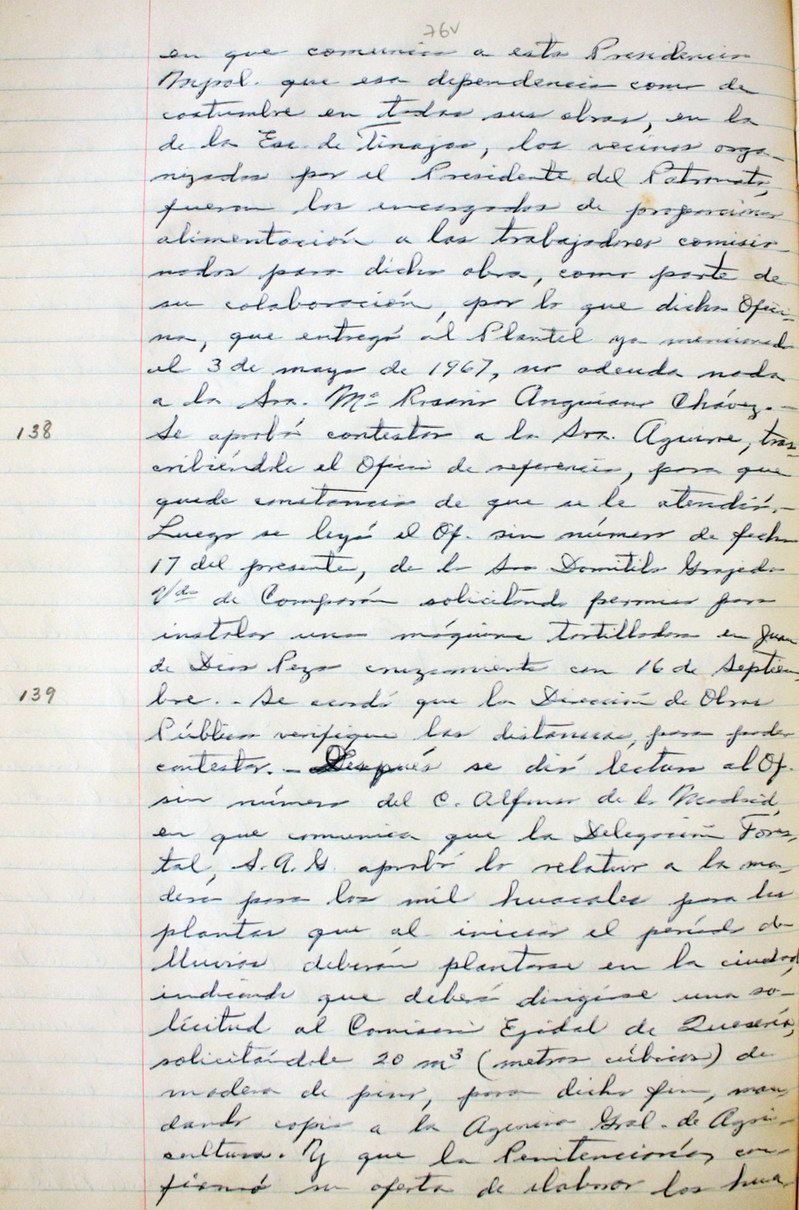 76v
en que comunica a esta Presidencia
Mpal. que esa dependencia como de
costumbre en todas sus obras, en la
de la Esc. de Tinajas, los vecinos orga-
nizados por el Presidente del Patronato,
fueron los encargados de proporcionar
alimentación a los trabajadores comisio-
nados para dicha obra, como parte de
su colaboración, por lo que dicha Ofici-
na, que entregó al Plantel ya mencionado
el 3 de mayo de 1967, no adeuda nada
a la Sra. Mª Rosario Anguiano Chávez.-
138 Se aprobó contestar a la Sra. Aguirre, tras-
cribiéndole el Oficio de referencia, para que
quede constancia de que se le atendió.-
Luego se leyó el Of. sin número de fecha
17 del presente, de la Sra Domitila Grageda
Vda de Comparán solicitando permiso para
instalar una máquina tortilladora en Juan
de Dios Peza cruzamiento con 16 de Septiem-
139 bre. - Se acordó que la Dirección de Obras
Públicas verifique las distancias, para poder
contestar. - Después se dió lectura al Of.
sin número del C. Alfonso de la Madrid,
en que comunica que la Delegación Fores-
tal, S.A.G. aprobó lo relativo a la ma-
dera para los mil huacales para las
plantas que al iniciar el período de
lluvias deberán plantarse en la ciudad,
indicando que deberá dirigirse una so-
licitud al Comisario Ejidal de Quesería,
solicitándole 20 m³ (metros cúbicos) de
madera de pino, para dicho fin, man-
dando copia a la Agencia Gral. de Agri-
cultura. Y que la Penitenciaría, con-
firmó su oferta de elaborar los hua-